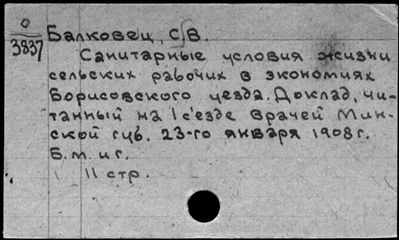 0
3837
Балковец, С В.
Санитарные условия жизни
сельских рабочих в экономиях
Борисовского уезда. Доклад, чи-
танный на 1 с'езде врачей Мин-
ской губ. 23-го января 1908 г.
Б. м. и г.
11 стр.